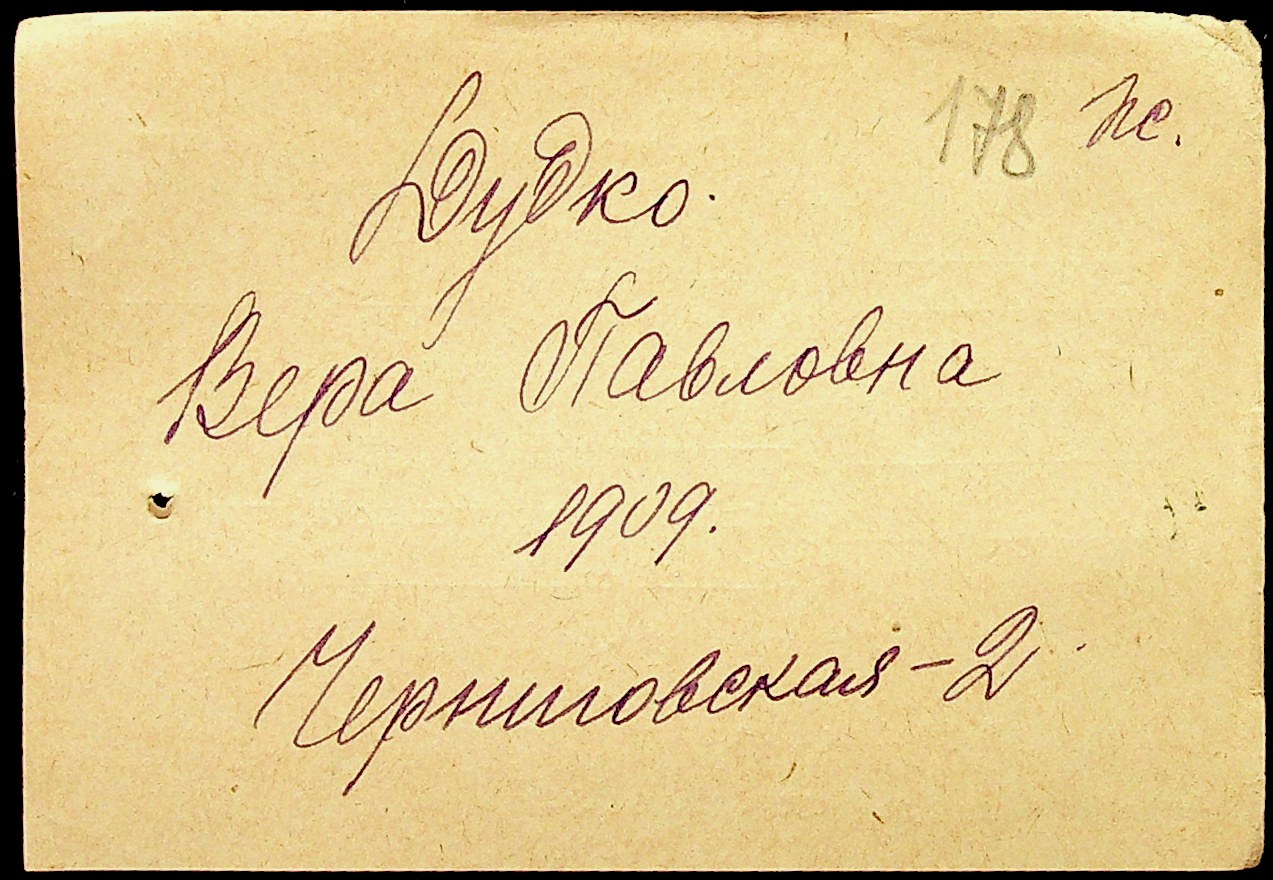 178 пс.
Дудко.
Вера Павловна
1909.
Черниговская-2.